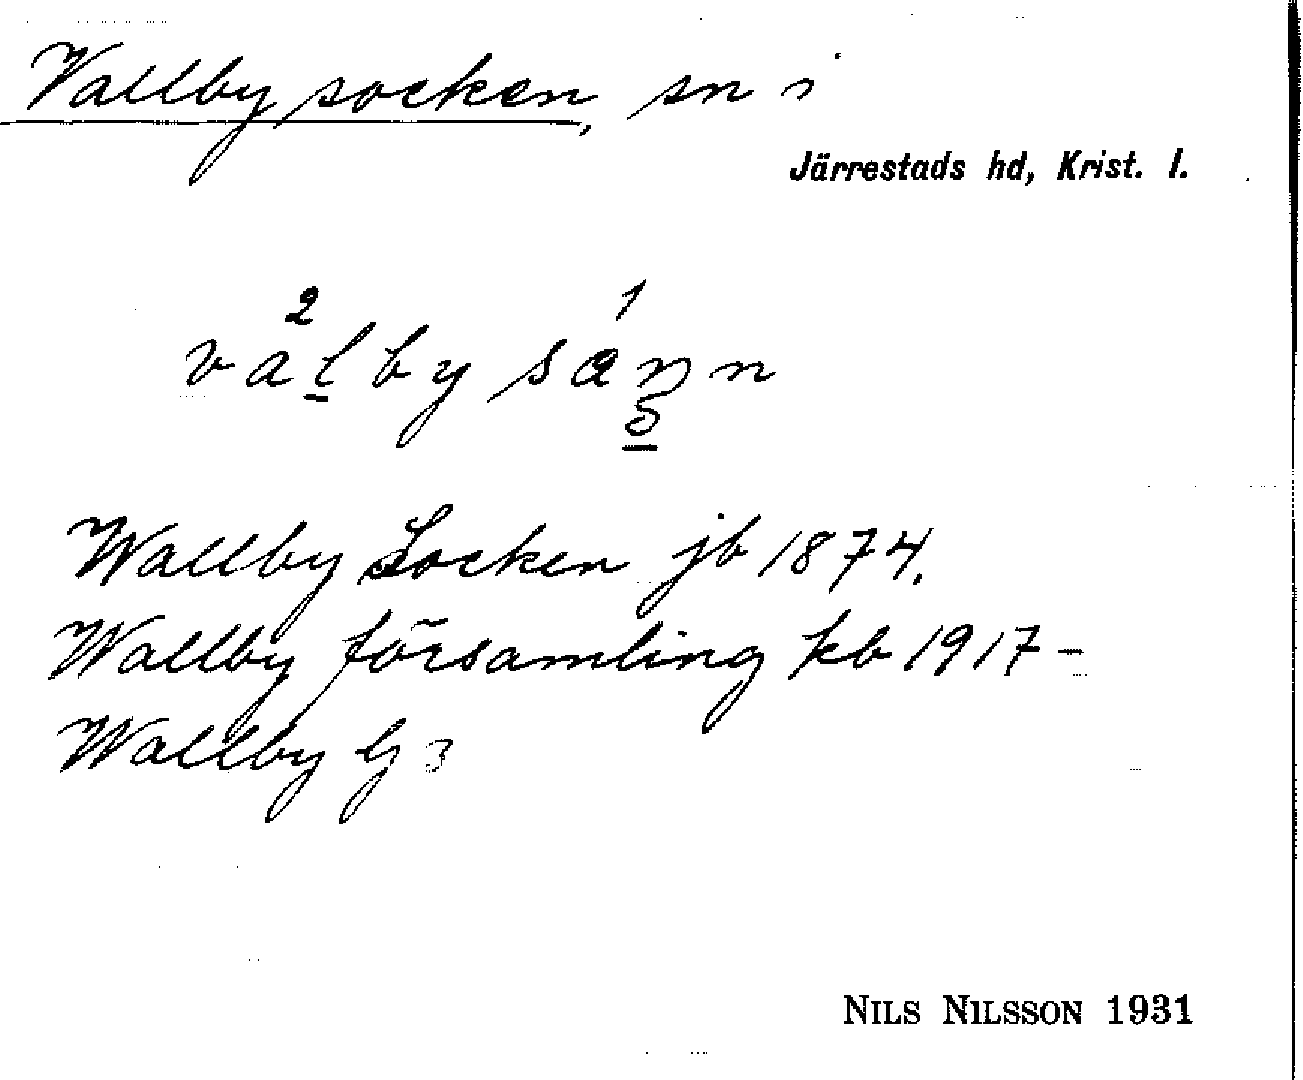 Vallby socken, sn i
Järrestads hd, Krist. l.
valby
Wallby Socken jb 1874.
Wallby församling kb 1917-
Wallby
NILS NILSSON 1931